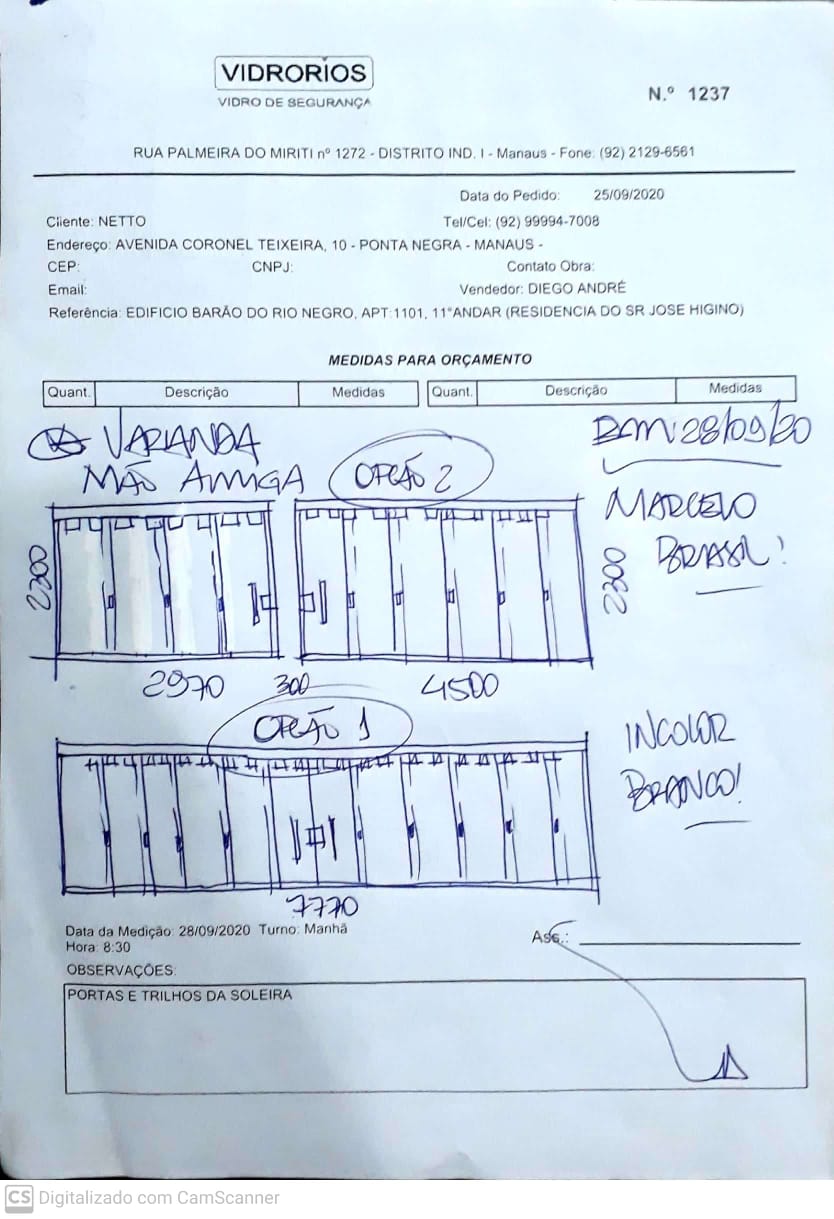 VIDRORIOS
VIDRO DE SEGURANÇA
N.º 1237
RUA PALMEIRA DO MIRITI nº 1272 - DISTRITO IND. I - Manaus - Fone: (92) 2129-6561
Data do Pedido: 25/09/2020
Cliente: NETTO Tel/Cel: (92) 99994-7008
Endereço: AVENIDA CORONEL TEIXEIRA, 10 - PONTA NEGRA - MANAUS -
CEP: CNPJ: Contato Obra:
Email: Vendedor: DIEGO ANDRÉ
Referência: EDIFICIO BARÃO DO RIO NEGRO, APT:1101, 11°ANDAR (RESIDENCIA DO SR JOSE HIGINO)
MEDIDAS PARA ORÇAMENTO
Quant. Descrição Medidas Quant. Descrição Medidas
VARANDA
28/09/20
MÃO AMIGA
OPÇÃO 2
MARCELO
BRASIL!
2300
2300
2970 300 4500
OPÇÃO 1
INCOLOR
BRANCO!
7770
Data da Medição: 28/09/2020 Turno: Manhã
Hora: 8:30
Ass.:
OBSERVAÇÕES:
PORTAS E TRILHOS DA SOLEIRA
CS Digitalizado com CamScanner